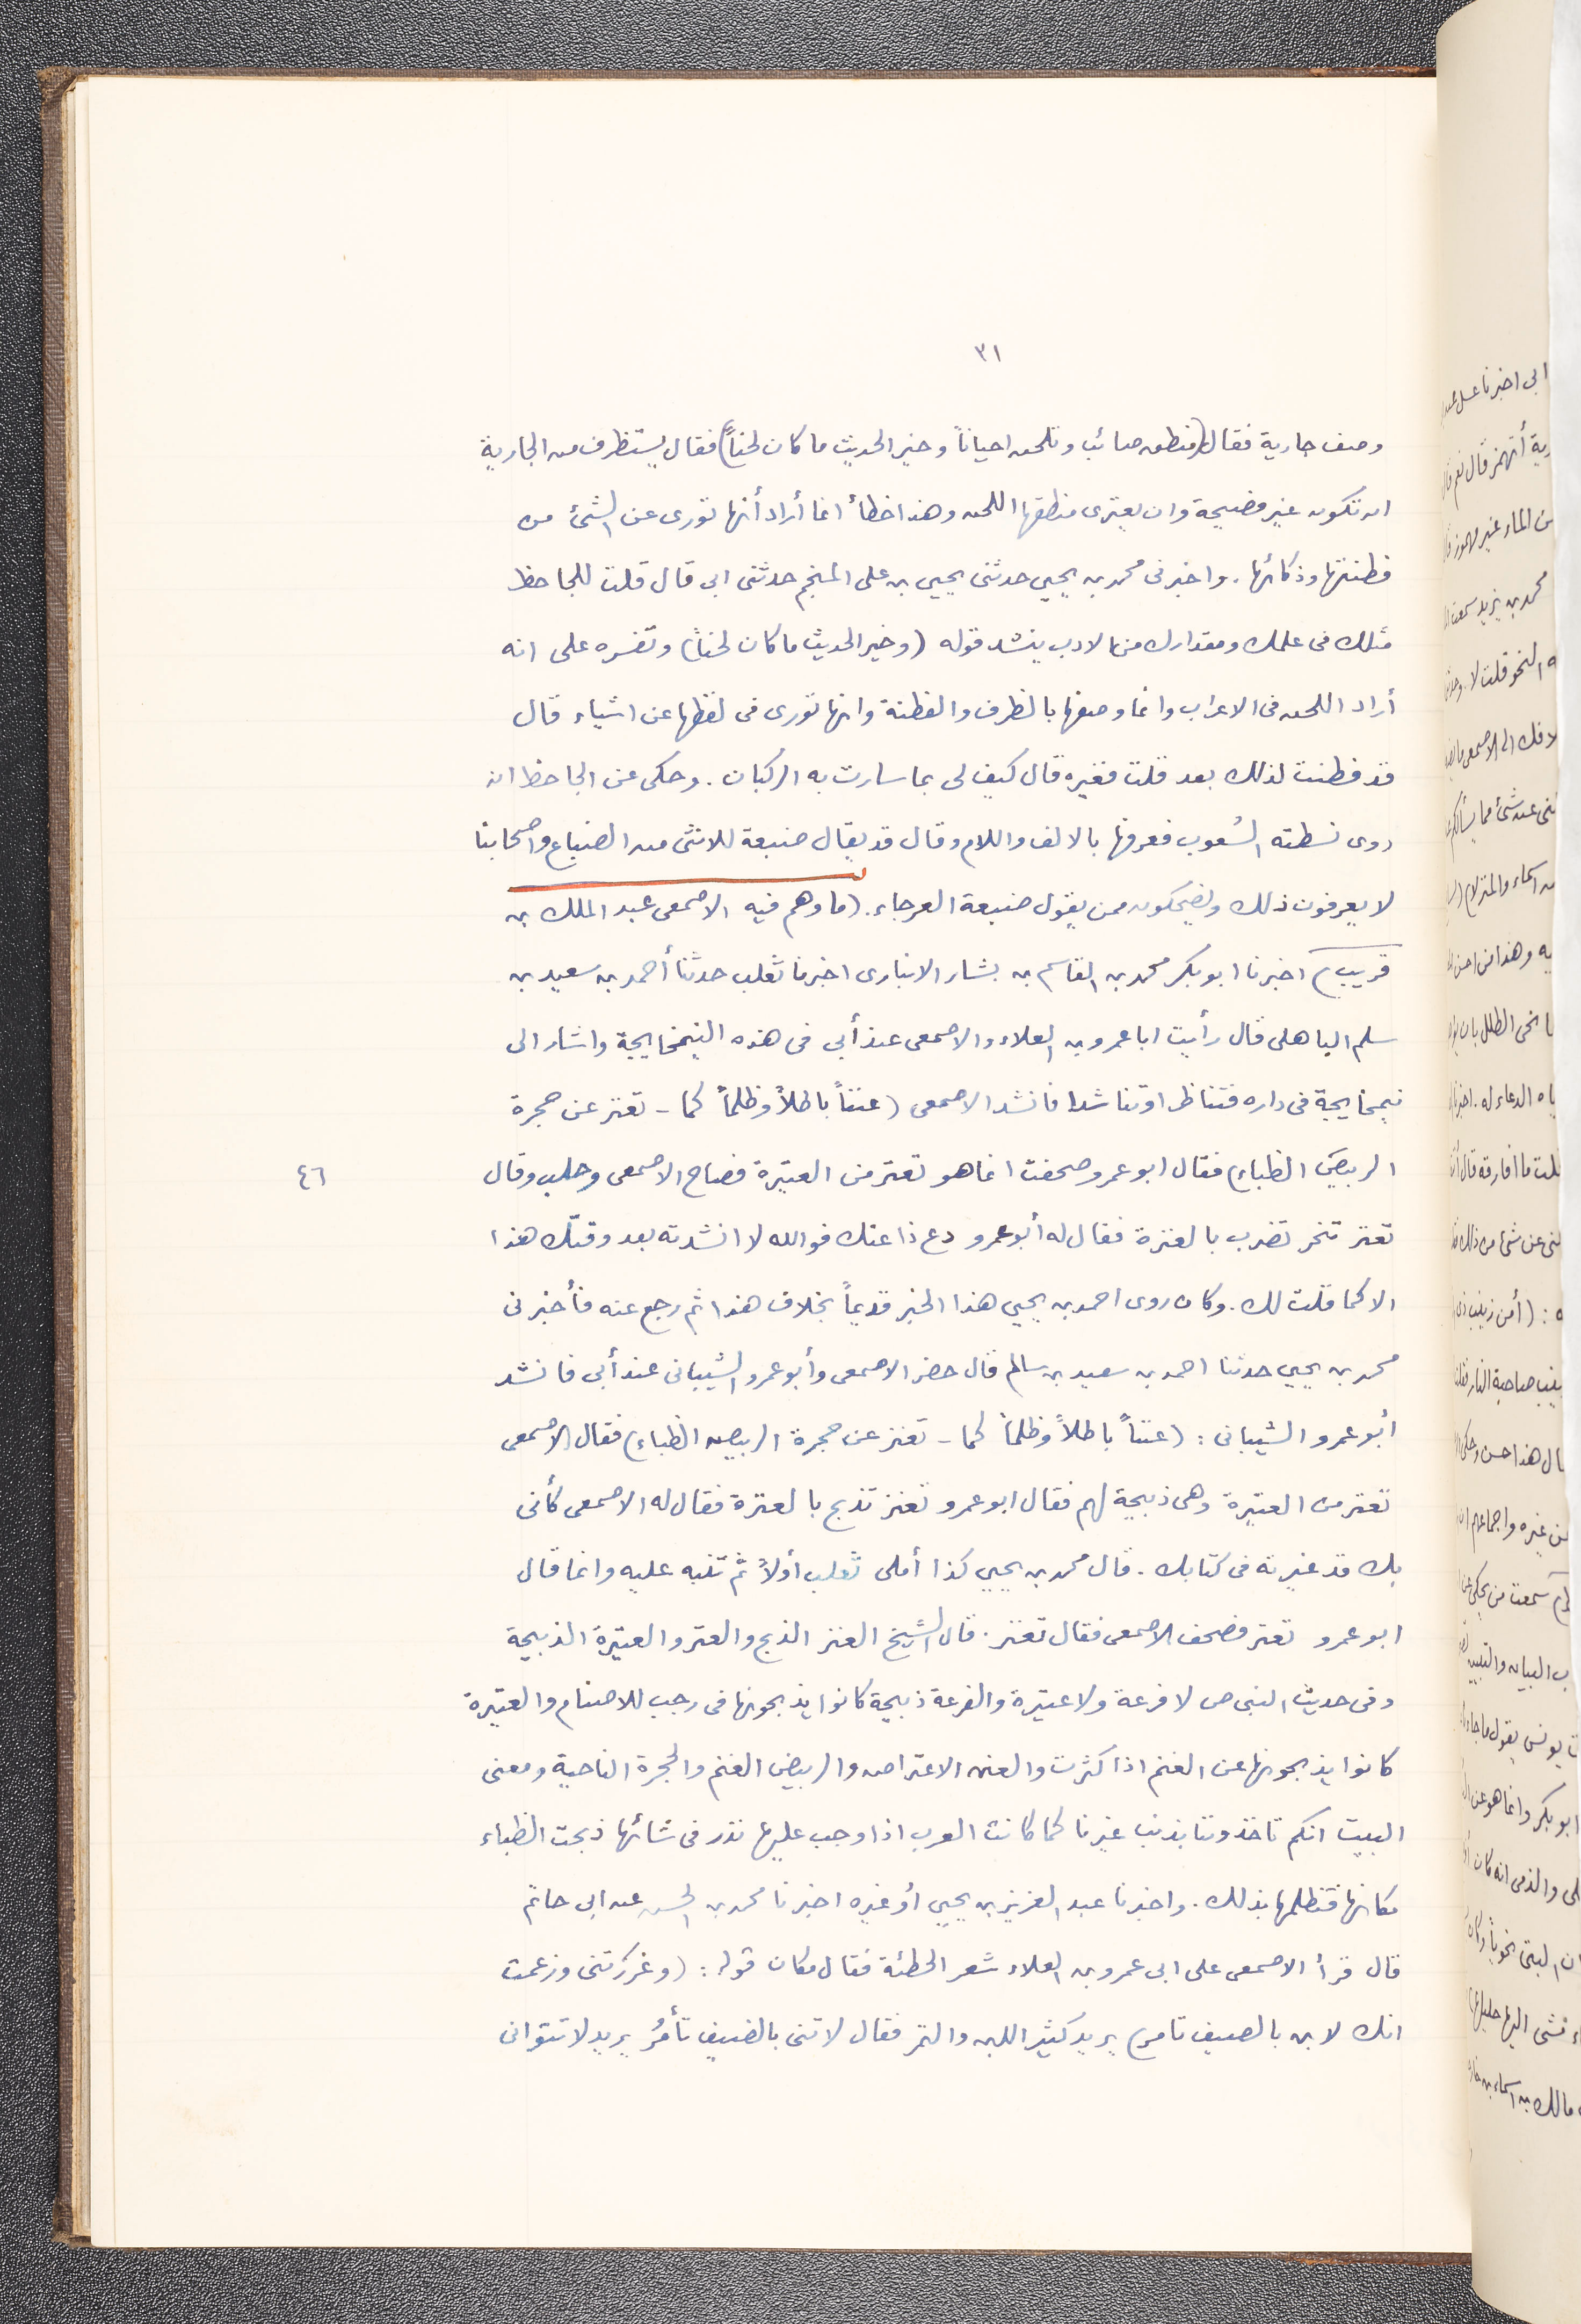 ٣١
وصف جارية فقال (منطق صائب وتلحن احياناً وخير الحديث ما كان لحناً) فقال يستظرف من الجارية
ان تكون غير فصيحة وان يعترى منطقها اللحن وهذا خطأ انما أراد أنها تورى عن الشئ من
فطنتها وذكائها. واخبرنى محمد بن يحيى حدثنى يحيى بن على المنجم حدثنى ابى قال قلت للجاحظ
مثلك فى علمك ومقدارك من الادب ينشد قوله (وخير الحديث ما كان لحناً) وتفسره على انه
أراد اللحن فى الاعراب وانما وصفها بالظرف والفطنة وانها تورى فى لفظها عن اشياء قال
قد فطنت لذلك بعد قلت فغيره قال كيف لى بما سارت به الركبان. وحكى عن الجاحظ انه
روى نسطته الشعوب فعرفها بالالف واللام وقال قد يقال ضبعة للانثى من الضباع واصحابنا
لا يعرفون ذلك ويضحكون ممن يقول ضبعة العرجاء. (ما وهم فيه الاصمعى عبد الملك بن
قريب) اخبرنا ابو بكر محمد بن القاسم بن بشار الانبارى اخبرنا ثعلب حدثنا أحمد بن سعيد بن
سلم الباهلى قال رأيت ابا عمرو بن العلاء والاصمعى عند أبى فى هذه النيمخايجة واشار الى
نيمخايجة فى داره فتناظرا وتناشدا فانشد الاصمعى (عنتاً باطلاً وظلماً كما - تعنز عن حجرة
الربيض الظباء) فقال ابو عمرو صحفت انما هو تعتر من العتيرة فصاح الاصمعى وجلب وقال
٤٦
تعنز تنحر تضرب بالعنزة فقال له أبو عمرو دع ذا عنك فوالله لا انشدته بعد وقتك هذا
الا كما قلت لك. وكان روى احمد بن يحيى هذا الخبر قديماً بخلاف هذا ثم رجع عنه فأخبرنى
محمد بن يحيى حدثنا احمد بن سعيد بن سالم قال حضر الاصمعى وأبو عمرو الشيبانى عند أبى فانشد
أبو عمرو الشيبانى: (عنتاً باطلاً وظلماً كما - تعنز عن حجرة الربيض الظباء) فقال الاصمعى
تعتر من العتيرة وهى ذبيحة لهم فقال ابو عمرو تعنز تذبح بالعنزة فقال له الاصمعى كأنى
بك قد غيرته فى كتابك. قال محمد بن يحيى كذا أملى ثعلب أولاً ثم تنبه عليه وانما قال
ابو عمرو تعتر فصحف الاصمعى فقال تعنز. قال الشيخ العنز الذبح والعتر والعتيرة الذبيحة
وفى حديث النبى ص لا فرعة ولا عتيرة والفرعة ذبيحة كانوا يذبحونها فى رجب للاصنام والعتيرة
كانوا يذبحونها عن الغنم اذا كثرت والعنن الاعتراض والربيض الغنم والحجرة الناحية ومعنى
البيت انكم تاخذوننا بذنب غيرنا كما كانت العرب اذا وجب عليها نذر فى شائها ذبحت الظباء
مكانها فتظلمها بذلك. واخبرنا عبد العزيز بن يحيى أو غيره اخبرنا محمد بن الحسن عن ابى حاتم
قال قرأ الاصمعى على ابى عمرو بن العلاء شعر الحطئة فقال مكان قوله: (وغررتنى وزعمت
انك لابن بالصيف تامر) يريد كثير اللبن والتمر فقال لا تنى بالضيف تأمرُ يريد لا تتوانى